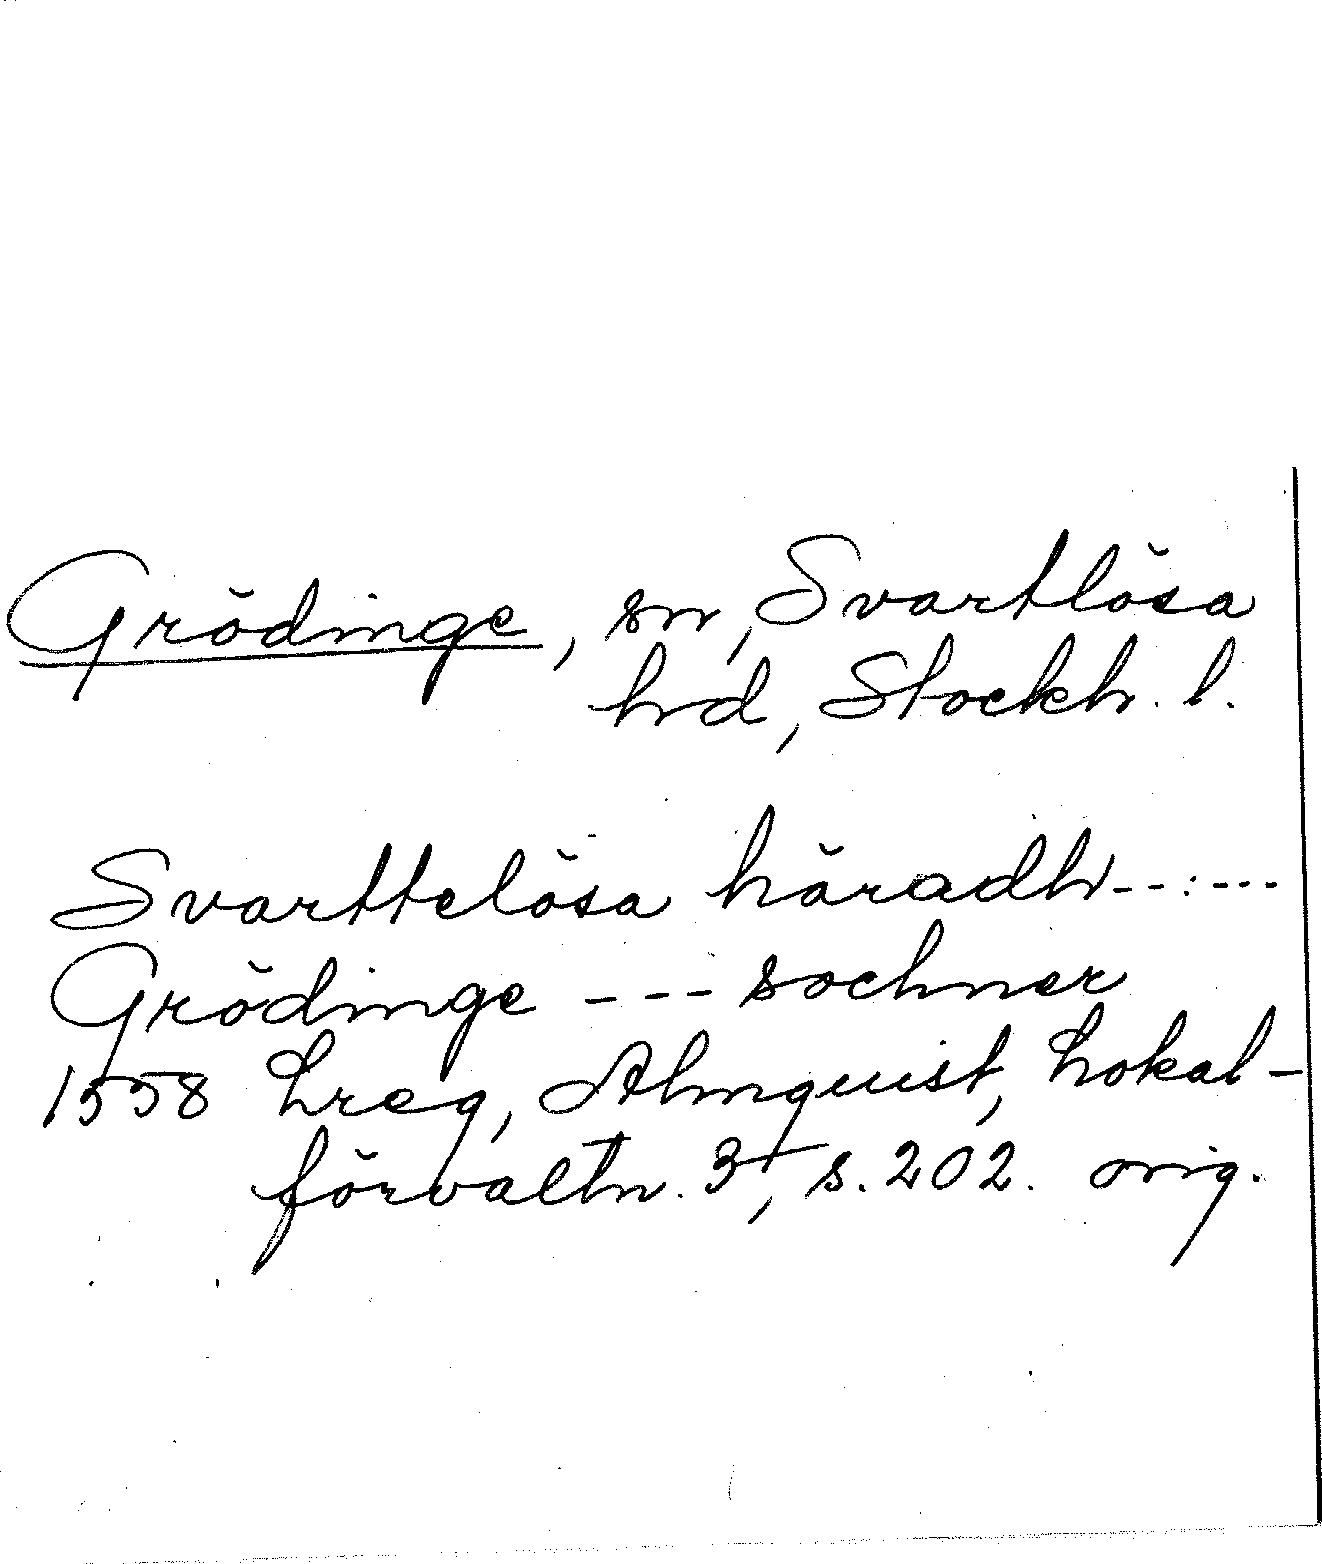 Grödinge, sn, Svartlösa
hrd, Stockh. l.
Svarttelösa häradh---:---
Grödinge --- sochner
1558 Lreg, Almquist, Lokal-
förvaltn. 3, s. 202. orig.